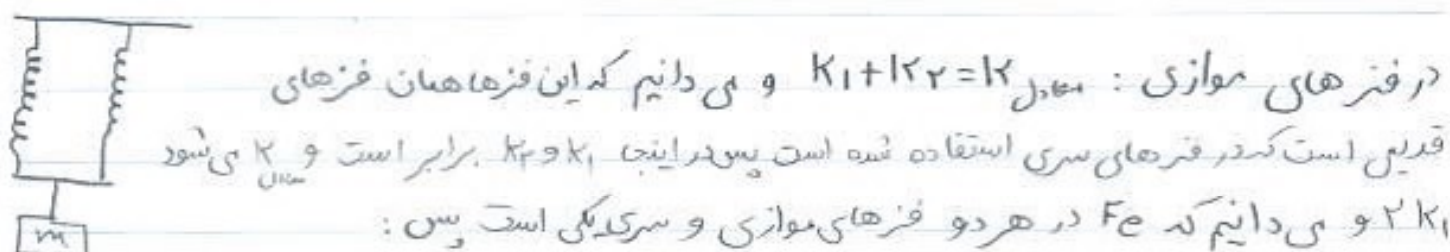 در فنر های موازی : K۱+K۲=K معادل و می دانیم که این فنرها همان فنرهای
قدیمی است که در فنر های سری استفاده شده است پس در اینجا K۱ و K۲ برابر است و K معادل می شود
۲K۱ و می دانیم که Fe در هر دو فنرهای موازی و سری یکی است پس :
m